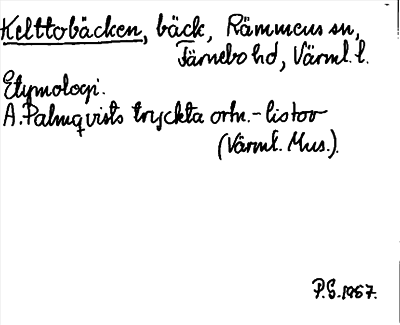 Kelttobäcken, bäck, Rämmens sn,
Färnebo hd, Värml. l.
Etymologi.
A. Palmqvists tryckta ortn.-listor
(Värml. Mus.).
P.S. 1967.